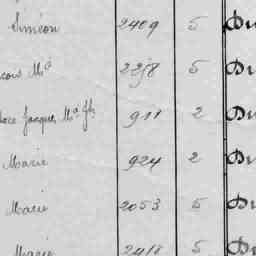 Siméon 2409 5 Du
Mª 2258 5 Du
Jacques Mª fls 911 2 Du
Marie 924 2 Du
Marie 2053 5 Du
Marie 2418 5 Du